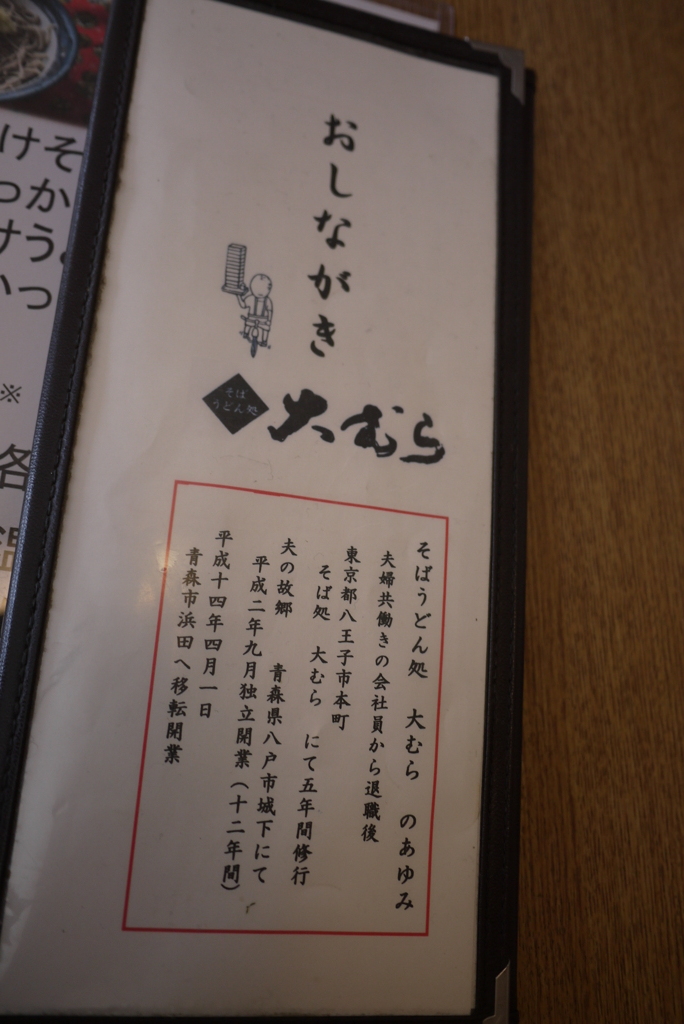 おしながき
そば
うどん処
大むら
そばうどん処 大むら のあゆみ
夫婦共働きの会社員から退職後
東京都八王子市本町
そば処 大むら にて五年間修行
夫の故郷 青森県八戸市城下にて
平成二年九月独立開業(十二年間)
平成十四年四月一日
青森市浜田へ移転開業
けそ
っか
けう
いっ
※
各